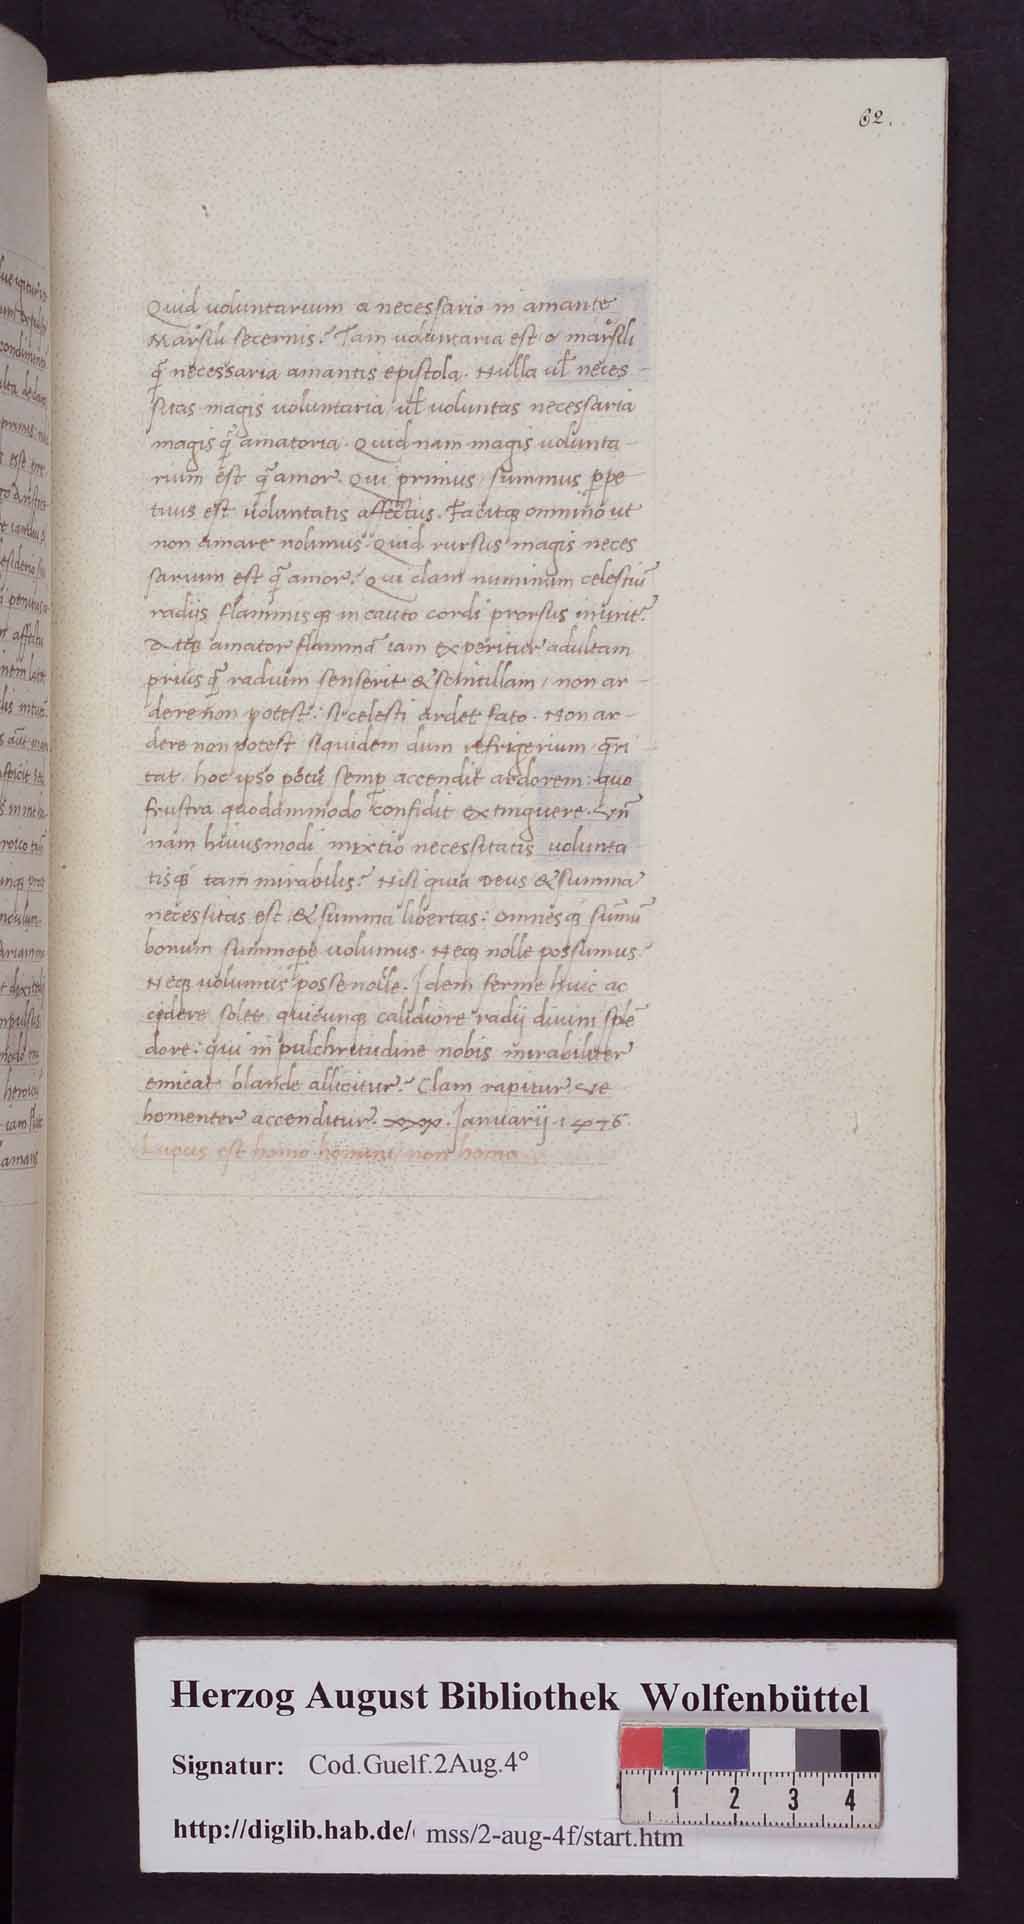 62.
Quid uoluntarium a necessario in amante
Marsilii secernis? Tam uoluntaria est o marsili
q̃ necessaria amantis epistola. Nulla ul̃ neces-
sitas magis uoluntaria ul̃ uoluntas necessaria
magis q̃ amatoria. Quid nam magis uolunta-
rium est q̃ amor. Qui primus, summus ꝑpe
tuus est uoluntatis affectus. Facitqȝ omnino ut
non amare nolimus. Quid rursus magis neces
sarium est q̃ amor? Qui clam numinum celestiũ
radiis flammisqȝ incauto cordi prorsus inurit?
Atqȝ amator flammã iam experitur adultam
prius q̃ radium senserit & scintillam, non ar-
dere non potest: si celesti ardet fato. Non ar-
dere non potest siquidem dum refrigerium q̃ri
tat. hoc ipso potu semꝑ accendit ardorem: quo
frustra quodammodo confidit extinguere. Vñ
nam huiusmodi mixtio necessitatis uolunta
tisqȝ tam mirabilis? Nisi quia Deus & summa
necessitas est, & summa libertas: omnesqȝ summũ
bonum summope uolumus. Neqȝ nolle possumus:
Neqȝ uolumus posse nolle. Idem ferme huic ac
cidere solet quicunqȝ calidiore radij diuini splẽ
dore: qui in pulchritudine nobis mirabiliter
emicat blande allicitur? Clam rapitur. Ve
homenter accenditur. xxx. Januarij. 1476.
Lupus est homo homini, non homo
Herzog August Bibliothek Wolfenbüttel
Signatur: Cod.Guelf.2Aug.4°
http://diglib.hab.de/ mss/2-aug-4f/start.htm
1 2 3 4